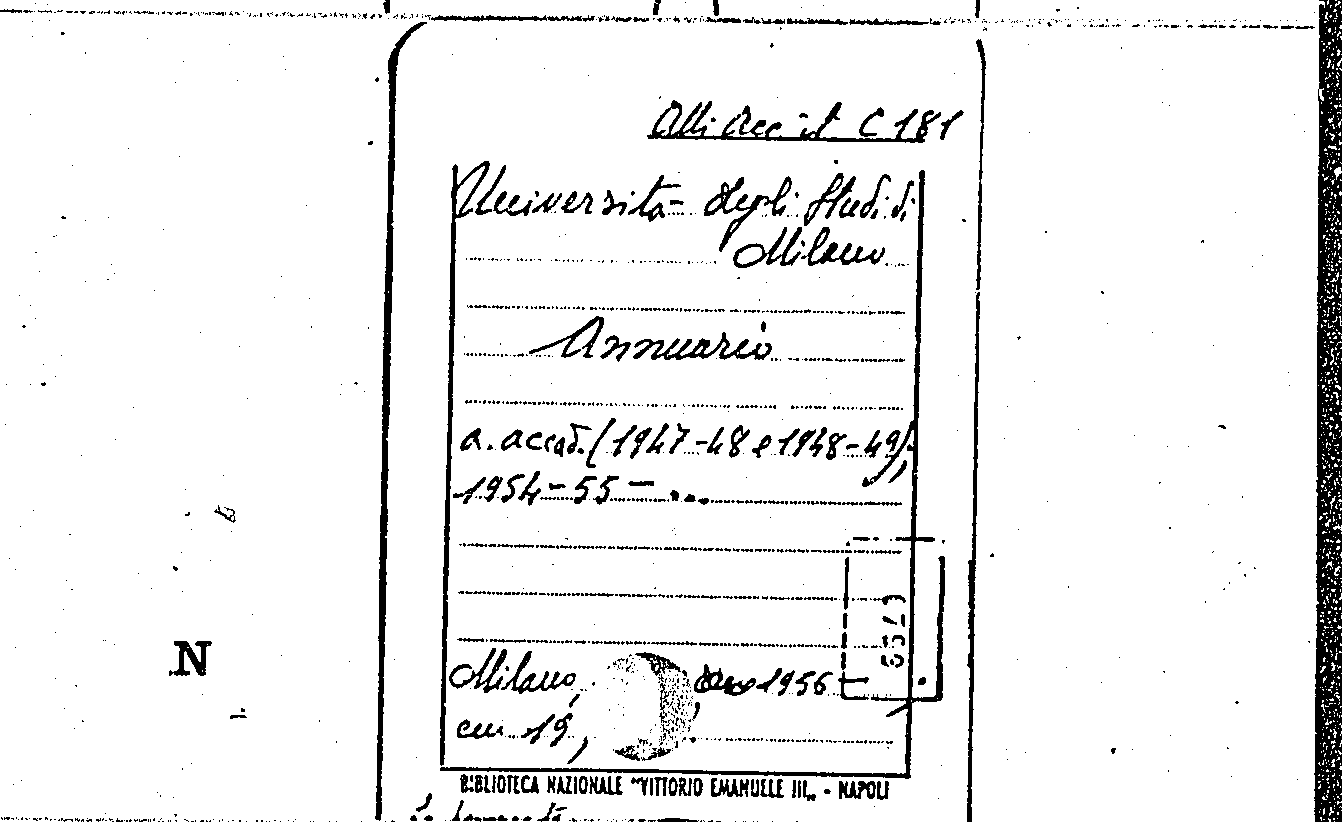 Atti Acc it C 181
Università degli Studi di
Milano
Annuario
a. accad. (1947-48 e 1948-49);
1954-55 - ...
Milano, 1956 -
cm 19,
BIBLIOTECA NAZIONALE "VITTORIO EMANUELE III„ - NAPOLI
N